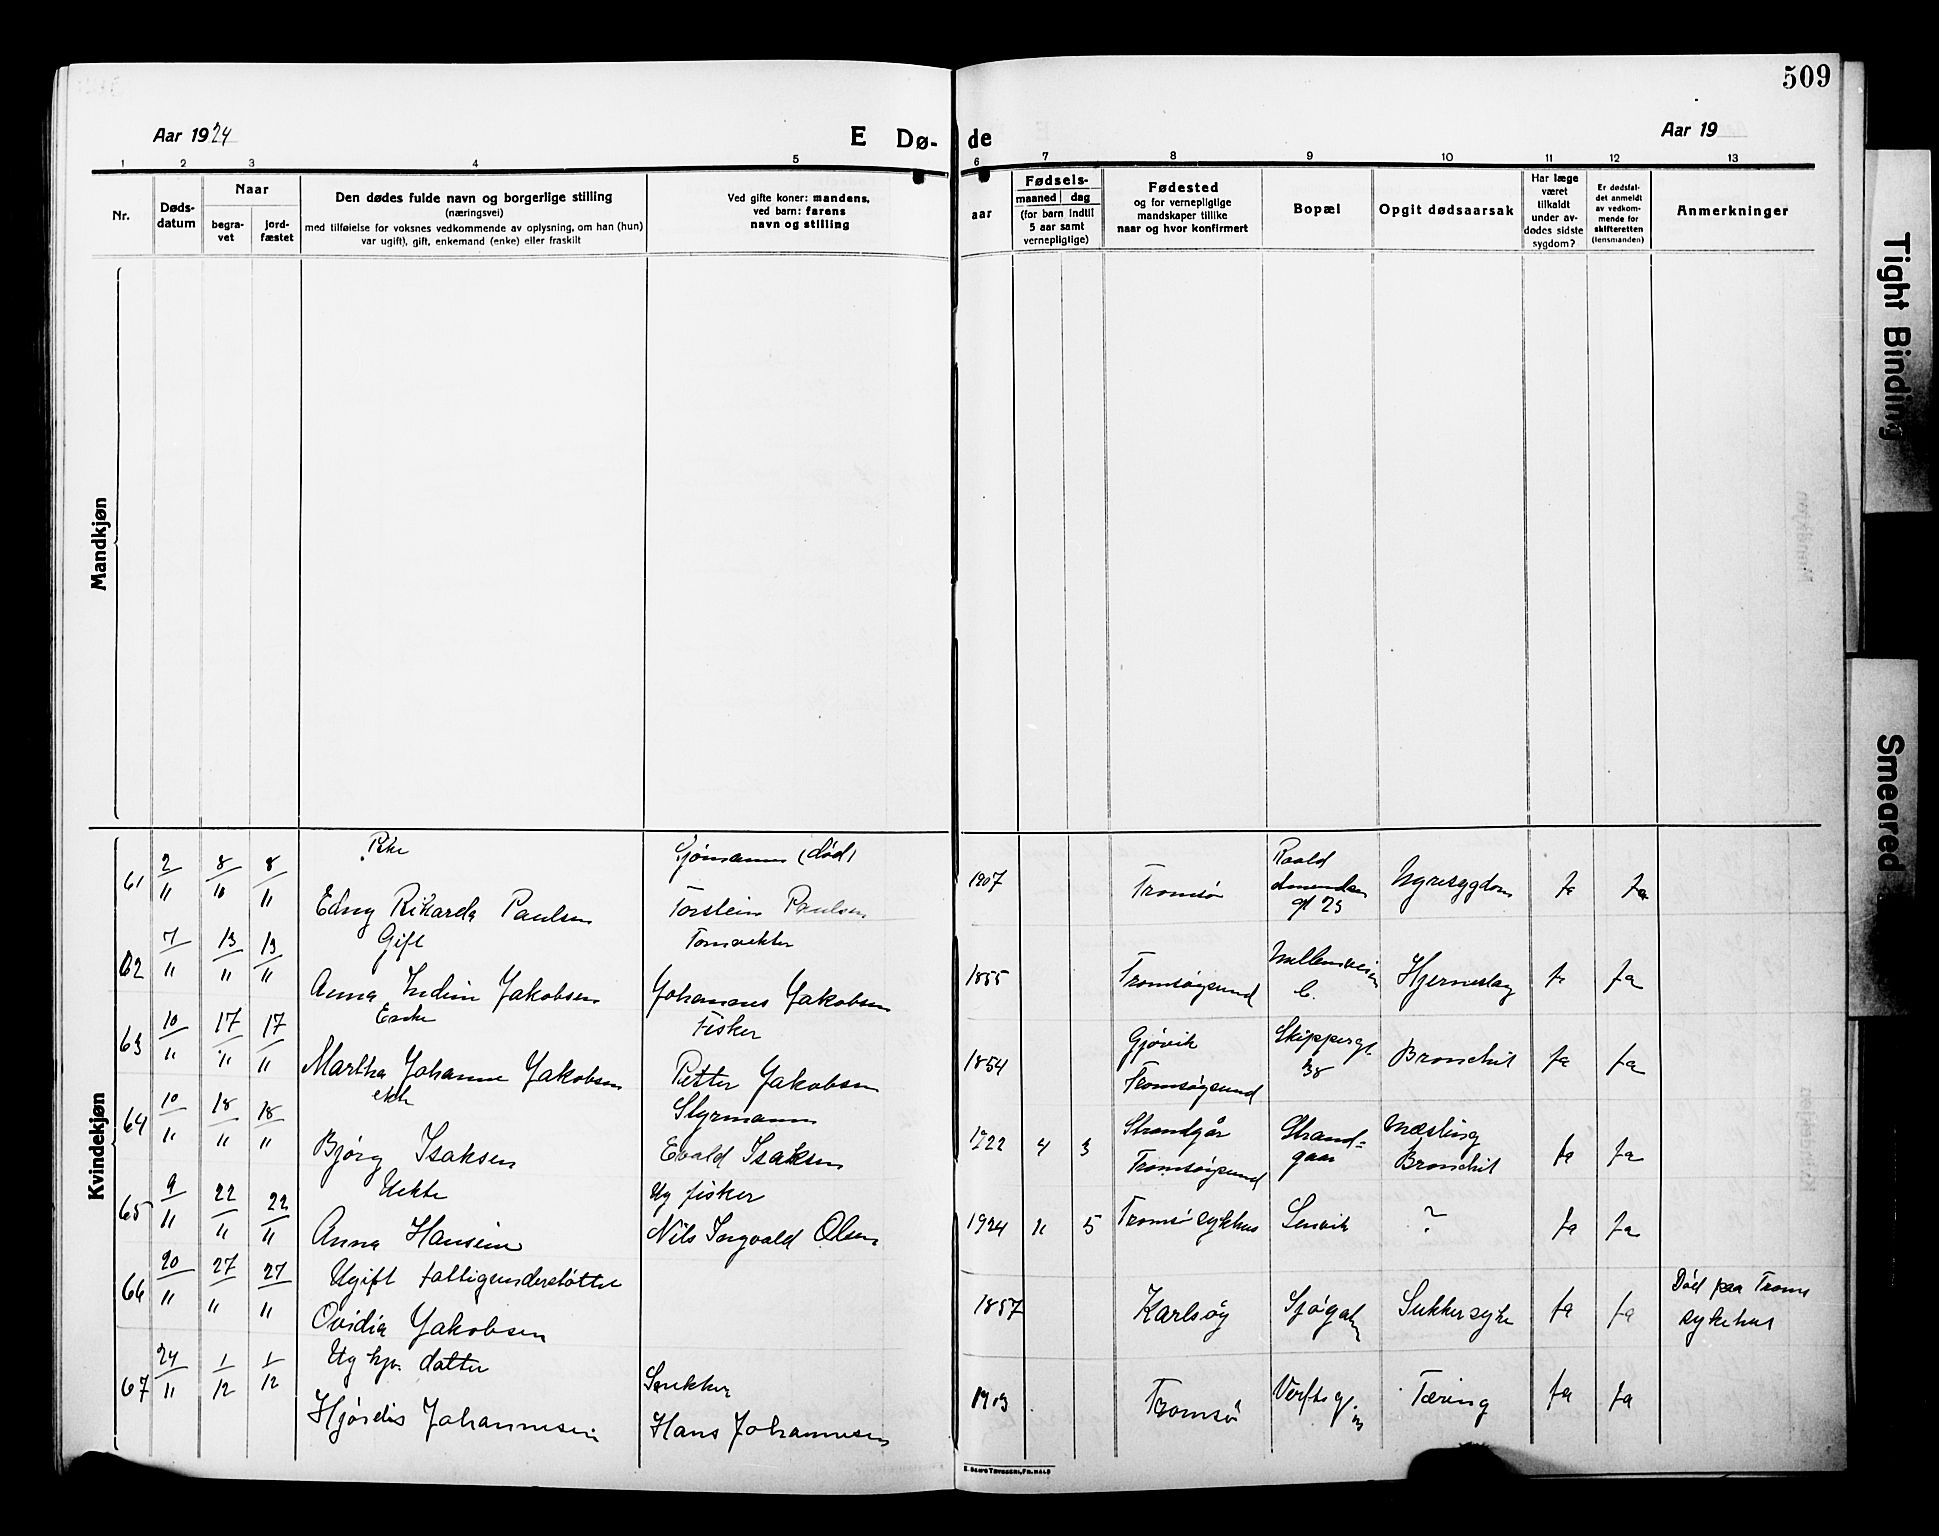 509
Aar 1924
E Dø- de
Aar 19
1 2 3 4 5 6 7 8 9 10 11 12 13
Nr.
Døds-
datum
Naar
begra-
vet
jord-
fæstet
Den dødes fulde navn og borgerlige stilling
(næringsvei)
med tilføielse for voksnes vedkommende av oplysning, om han (hun)
var ugift), gift, enkemand (enke) eller fraskilt
Ved gifte koner: mandens,
ved barn: farens
navn og stilling
aar
Fødsels-
maaned dag
(for barn indtil
5 aar samt
vernepligtige)
Fødested
og for vernepligtige
mandskaper tillike
naar og hvor konfirmert
Bopæl
Opgit dødsaarsak
Har læge
været
tilkaldt
under av-
dødes sidste
sygdom?
Er dødsfal-
det anmeldt
av vedkom-
mende for
skifteretten
(lensmanden)
Anmerkninger
Mandkjøn
Kvindekjøn
61 2/11 8/11 8/11
Pike
Edny Rikarda Paulsen
Sjømann (død)
Torstein Paulsen
1907 Tromsø
Roald
Amundsen
gt 23
Nyresygdom ja ja
62 7/11 13/11 13/11
Gift
Anna Indine Jakobsen
Johannes Jakobsen
1855 Tromsøysund
Hjerneslag ja ja
63 10/11 17/11 17/11
Enke
Martha Johanne Jakobsen
Fisker
Petter Jakobsen
1854
Gjøvik
Tromsøysund
Skippergt
38
Bronchit ja ja
64 10/11 18/11 18/11
ekte
Bjørg Isaksen
Styrmann
Evald Isaksen
1922 4 3
Strandgår
Tromsøysund
Strand=
gaar
Mæsling
Bronchit
ja ja
65 9/11 22/11 22/11
Uekte
Anna Hansine
Ug fisker
Nils Ingvald Olsen
1924 11 5 Tromsø sykhus Lenvik ? ja ja
66 20/11 27/11 27/11
Ugift fattigunderstøttet
Ovidia Jakobsen
1857 Karlsøy Sjøgaten Sukkersyke ja ja
Død paa Troms
sykehus
67 24/11 1/12 1/12
Ug hjv. datter
Hjørdis Johannesen
Snekker
Hans Johannesen
1903 Tromsø Verftsg. Tæring ja ja
Tight Binding
Smeared